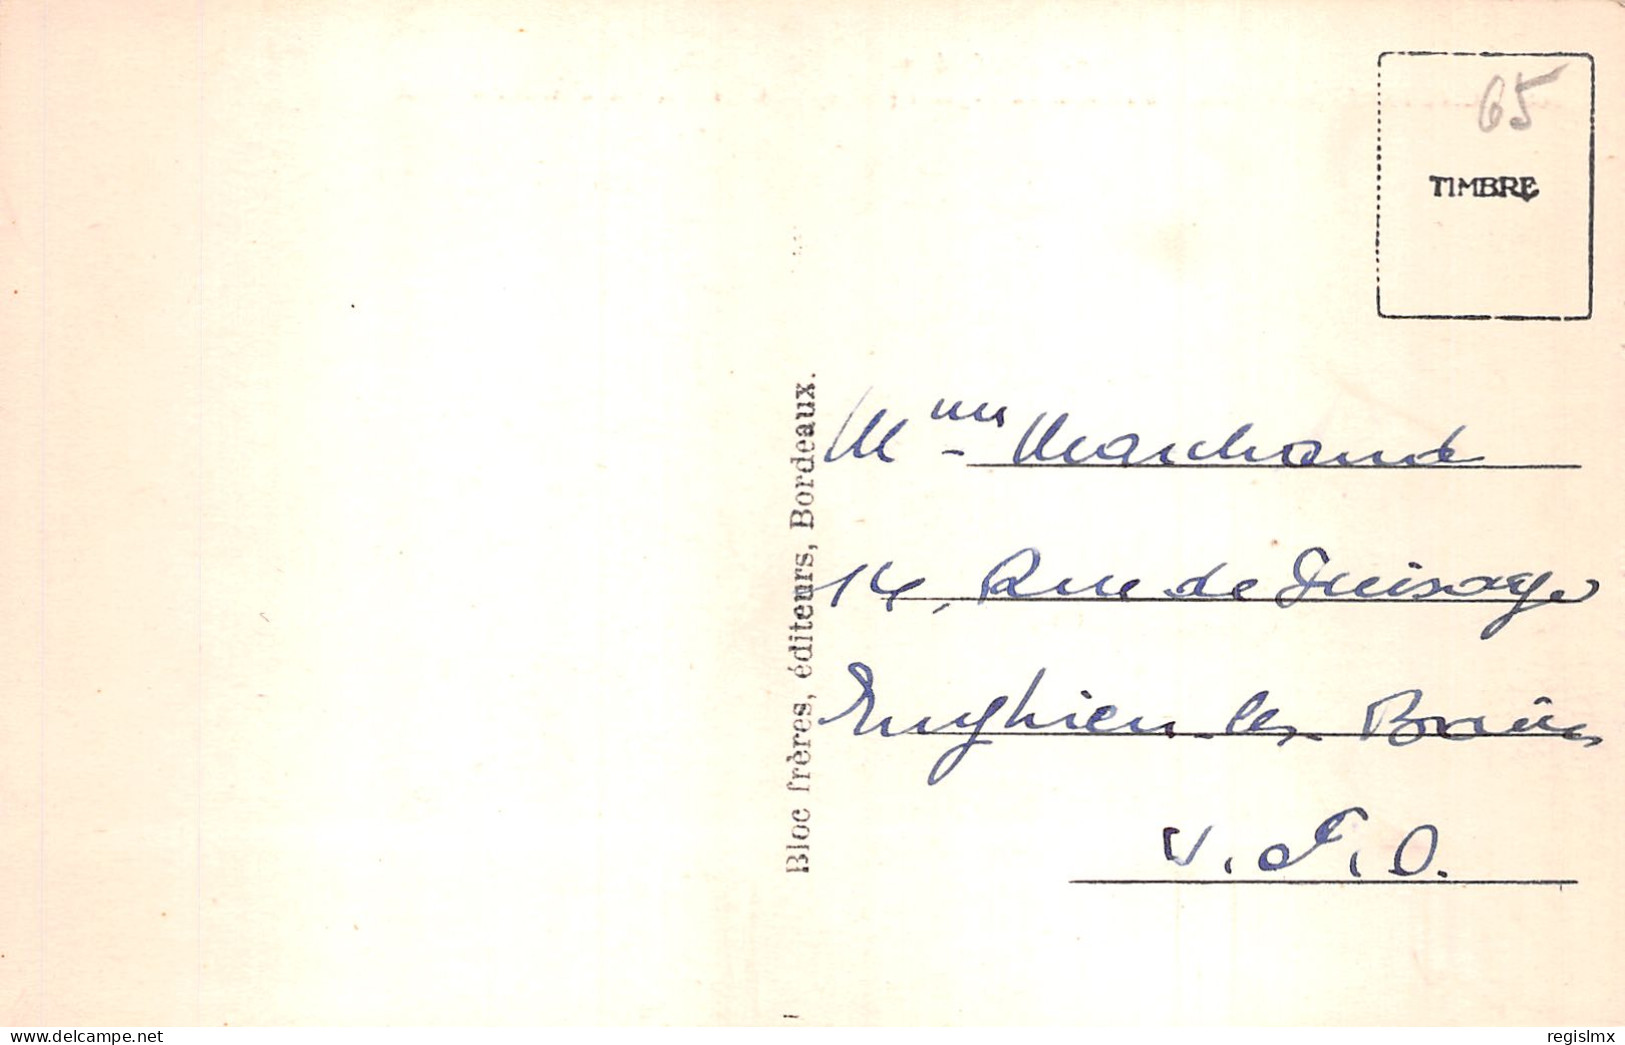 65
TIMBRE
Bloc frères, éditeurs, Bordeaux.
Mme Marchand
14, Rue de Puisaye
Enghien-les-Bains
V. F. O.
www.delcampe.net
regislmx